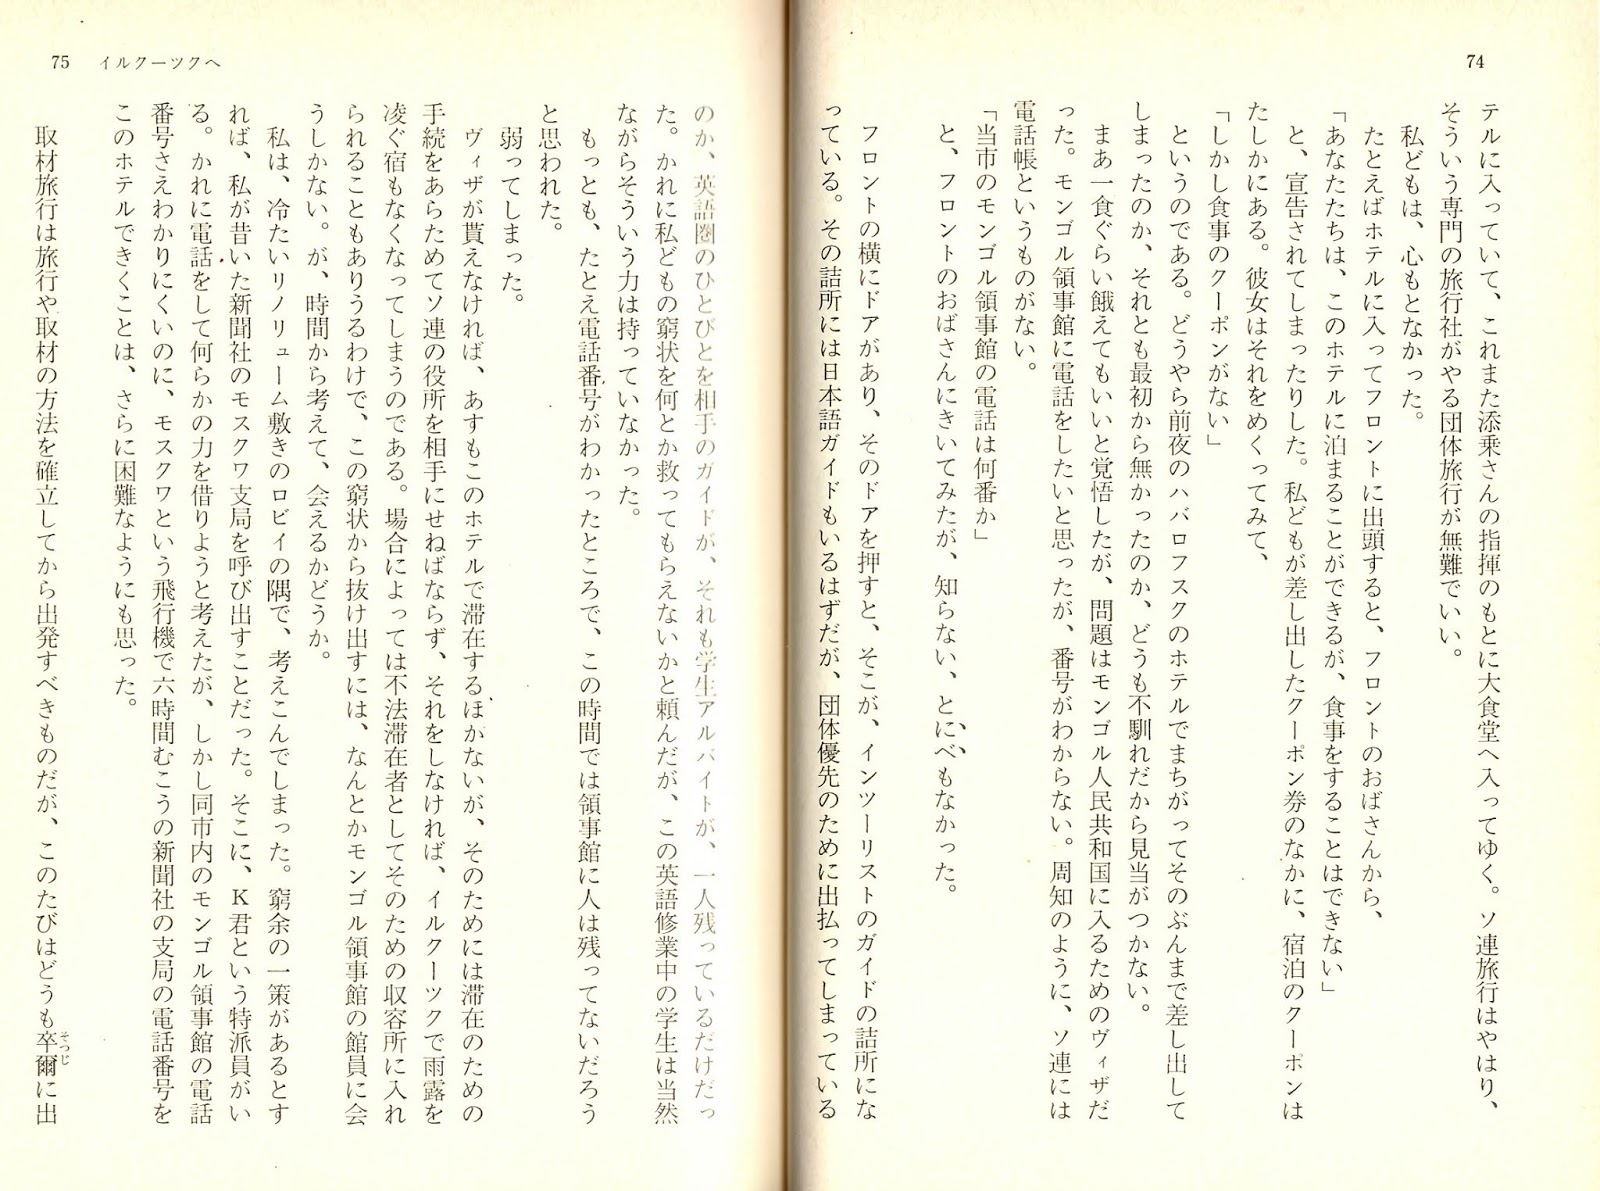 74
テルに入っていて、これまた添乗さんの指揮のもとに大食堂へ入ってゆく。ソ連旅行はやはり、
そういう専門の旅行社がやる団体旅行が無難でいい。
私どもは、心もとなかった。
たとえばホテルに入ってフロントに出頭すると、フロントのおばさんから、
「あなたたちは、このホテルに泊まることができるが、食事をすることはできない」
と、宣告されてしまったりした。私どもが差し出したクーポン券のなかに、宿泊のクーポンは
たしかにある。彼女はそれをめくってみて、
「しかし食事のクーポンがない」
というのである。どうやら前夜のハバロフスクのホテルでまちがってそのぶんまで差し出して
しまったのか、それとも最初から無かったのか、どうも不馴れだから見当がつかない。
まあ一食ぐらい餓えてもいいと覚悟したが、問題はモンゴル人民共和国に入るためのヴィザだ
った。モンゴル領事館に電話をしたいと思ったが、番号がわからない。周知のように、ソ連には
電話帳というものがない。
「当市のモンゴル領事館の電話は何番か」
と、フロントのおばさんにきいてみたが、知らない、とにべもなかった。
フロントの横にドアがあり、そのドアを押すと、そこが、インツーリストのガイドの詰所にな
っている。その詰所には日本語ガイドもいるはずだが、団体優先のために出払ってしまっている
75 イルクーツクへ
のか、英語圏のひとびとを相手のガイドが、それも学生アルバイトが、一人残っているだけだっ
た。かれに私どもの窮状を何とか救ってもらえないかと頼んだが、この英語修業中の学生は当然
ながらそういう力は持っていなかった。
もっとも、たとえ電話番号がわかったところで、この時間では領事館に人は残ってないだろう
と思われた。
弱ってしまった。
ヴィザが貰えなければ、あすもこのホテルで滞在するほかないが、そのためには滞在のための
手続をあらためてソ連の役所を相手にせねばならず、それをしなければ、イルクーツクで雨露を
凌ぐ宿もなくなってしまうのである。場合によっては不法滞在者としてそのための収容所に入れ
られることもありうるわけで、この窮状から抜け出すには、なんとかモンゴル領事館の館員に会
うしかない。が、時間から考えて、会えるかどうか。
私は、冷たいリノリューム敷きのロビイの隅で、考えこんでしまった。窮余の一策があるとす
れば、私が昔いた新聞社のモスクワ支局を呼び出すことだった。そこに、K君という特派員がい
る。かれに電話をして何らかの力を借りようと考えたが、しかし同市内のモンゴル領事館の電話
番号さえわかりにくいのに、モスクワという飛行機で六時間むこうの新聞社の支局の電話番号を
このホテルできくことは、さらに困難なようにも思った。
取材旅行は旅行や取材の方法を確立してから出発すべきものだが、このたびはどうも卒爾に出
そつじ